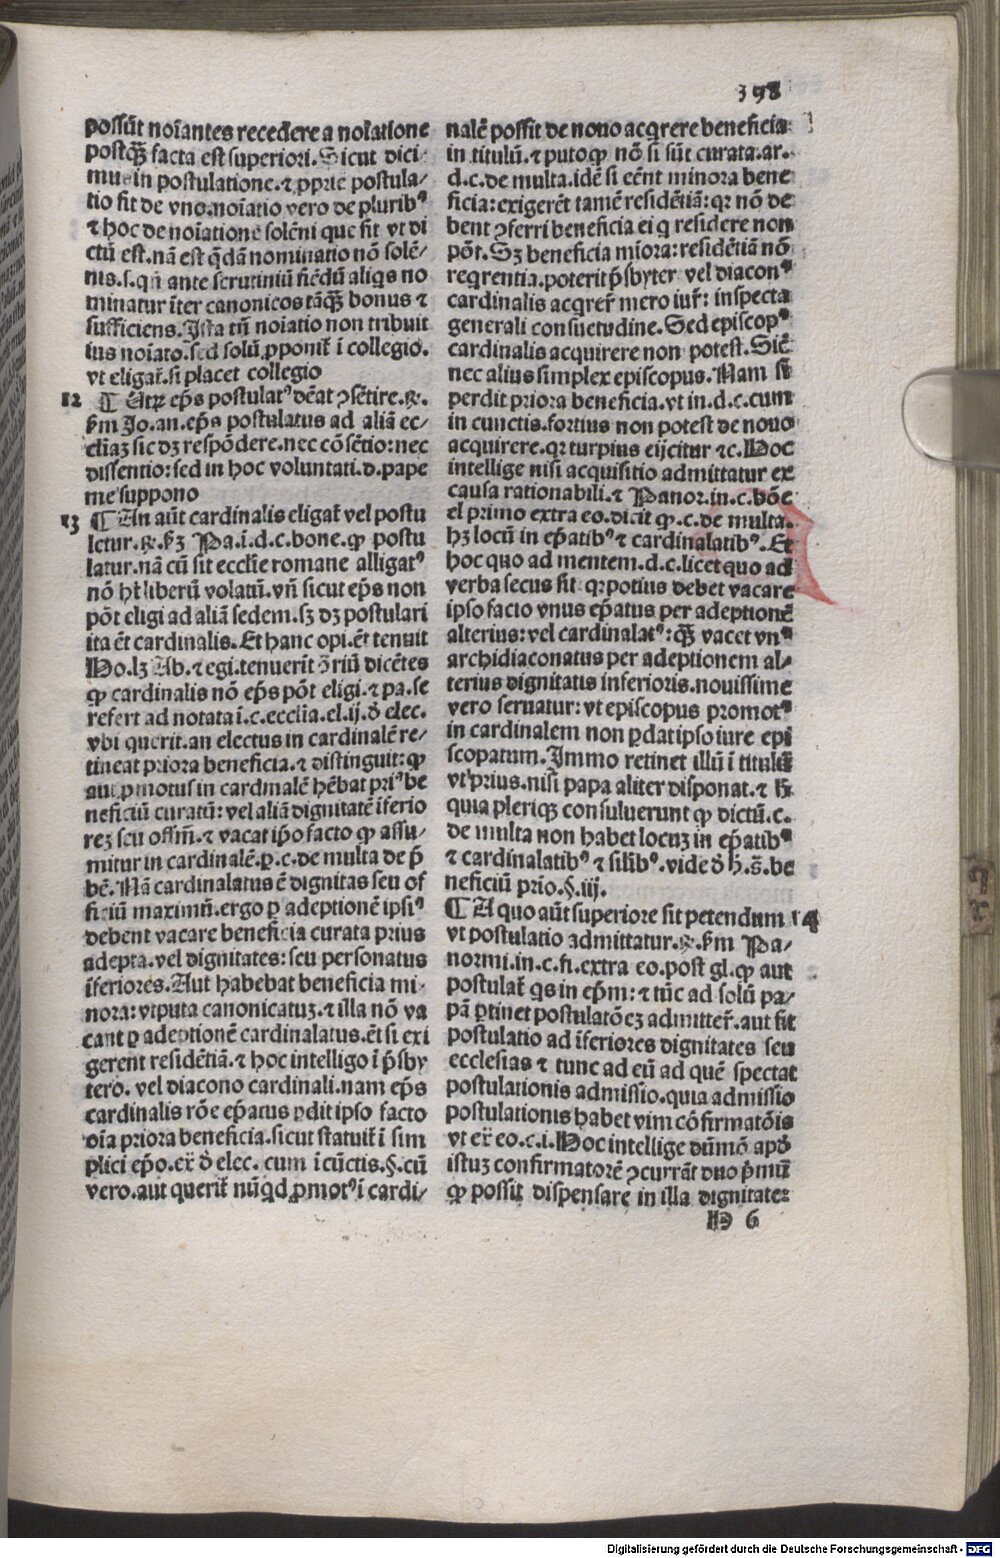 398
possũt noĩantes recedere a noĩatione
postq̃ȝ facta est superiori. Sicut dici-
mus in postulatione.⁊ ꝓprie postula/
tio fit de vno.noĩatio vero de pluribꝰ
⁊ hoc de noĩatione solẽni que fit vt di
ctũ est.nã est q̃dã nominatio nõ solẽ/
nis.s.qñ ante scrutiniũ fiẽdũ aliqs no
minatur ĩter canonicos tãq̃ȝ bonus ⁊
sufficiens.Ista tñ noĩatio non tribuit
ius noĩato.sed solũ ꝓponit̃ ĩ collegio.
vt eligat̃.si placet collegio
12 ¶ Utꝝ ep̃s postulatꝰ dẽat ꝯsẽtire.℟.
ẞm Jo.an.ep̃s postulatus ad aliã ec/
cliaȝ sic dȝ respõdere.nec cõsẽtio:nec
dissentio:sed in hoc voluntati.d.pape
me suppono
13 ¶ An aũt cardinalis eligat̃ vel postu
letur.℟.ẞȝ Pa.ĩ.d.c.bone.ꝙ postu
latur.nã cũ sit ecclie romane alligatꝰ
nõ hȝ liberũ volatũ.vñ sicut ep̃s non
põt eligi ad aliã sedem.sȝ dȝ postulari
ita ẽt cardinalis.Et hanc opi.ẽt tenuit
Ho.lȝ Ab.⁊ egi.tenuerĩt ꝯ̃riũ dicẽtes
ꝙ cardinalis nõ ep̃s põt eligi.⁊ pa.se
refert ad notata ĩ.c.ecclia.el.ij.ð elec.
vbi querit.an electus in cardinalẽ re/
tineat priora beneficia.⁊ distinguit:ꝙ
aut ꝓmotus in cardinalẽ hẽbat priꝰ be
neficiũ curatũ:vel aliã dignitatẽ ĩferio
reȝ seu offm̃.⁊ vacat ip̃o facto ꝙ assu/
mitur in cardinalẽ.ꝑ.c.de multa de p̃
bẽ.Nã cardinalatus ẽ dignitas seu of
ficiũ maximũ.ergo ꝑ adeptionẽ ipsiꝰ
debent vacare beneficia curata prius
adepta.vel dignitates:seu personatus
ĩferiores.Aut habebat beneficia mi-
nora:vtputa canonicatuȝ.⁊ illa nõ va
cant ꝑ adeptionẽ cardinalatus.ẽt si exi
gerent residẽtiã.⁊ hoc intelligo ĩ p̃sby
tero. vel diacono cardinali.nam ep̃s
cardinalis rõe ep̃atus ꝑdit ipso facto
oĩa priora beneficia.sicut statuit̃ ĩ sim
plici ep̃o.ex̃ ð elec. cum ĩ cũctis.§.cũ
vero.aut querit̃ nũqd ꝓmotꝰ ĩ cardi/
nalẽ possit de nouo acqrere beneficia
in titulũ.⁊ puto ꝙ nõ si sũt curata.ar.
d.c.de multa.idẽ si eẽnt minora bene
ficia:exigerẽt tamẽ residẽtiã:qꝛ nõ de
bent ꝯferri beneficia ei q residere non
põt.Sȝ beneficia mĩora:residẽtiã nõ
reqrentia.poterit p̃sbyter vel diaconꝰ
cardinalis acqrer̃ mero iur̃: inspecta
generali consuetudine.Sed episcopꝰ
cardinalis acquirere non potest.Sic̃
nec alius simplex episcopus.Nam si
perdit priora beneficia.vt in.d.c.cum
in cunctis.fortius non potest de nouo
acquirere.qꝛ turpius eijcitur ⁊c.Hoc
intellige nisi acquisitio admittatur ex
causa rationabili.⁊ Panor.in.c.bõe
el primo extra eo.dicit ꝙ.c.de multa.
hȝ locũ in ep̃atibꝰ ⁊ cardinalatibꝰ.Et
hoc quo ad mentem.d.c.licet quo ad
verba secus sit qꝛ potius debet vacare
ipso facto vnus ep̃atus per adeptionẽ
alterius:vel cardinalatꝰ:q̃ȝ vacet vnꝰ
archidiaconatus per adeptionem al/
terius dignitatis inferioris.nouissime
vero seruatur:vt episcopus promotꝰ
in cardinalem non ꝑdat ipso iure epi
scopatum.Immo retinet illũ ĩ titulũ
vt prius.nisi papa aliter disponat.⁊ ħ
quia pleriqȝ consuluerunt ꝙ dictũ.c.
de multa non habet locuȝ in ep̃atibꝰ
⁊ cardinalatibꝰ ⁊ silibꝰ.vide ð ħ.s̃.be
neficiũ prio.§.iij.
¶ A quo aũt superiore sit petendum 14
vt postulatio admittatur.℟.ẞm Pa/
normi.in.c.fi.extra eo.post gl.ꝙ aut
postulat̃ qs in ep̃m:⁊ tũc ad solũ pa/
pã ꝑtinet postulatõeȝ admitter̃.aut fit
postulatio ad ĩferiores dignitates seu
ecclesias ⁊ tunc ad eũ ad quẽ spectat
postulationis admissio.quia admissio
postulationis habet vim cõfirmatõis
vt ex̃ eo.c.i.Hoc intellige dũmõ apð
istuȝ confirmatorẽ ꝯcurrãt duo p̃mũ
ꝙ possit dispensare in illa dignitate:
H 6
Digitalisierung gefördert durch die Deutsche Forschungsgemeinschaft - DFG